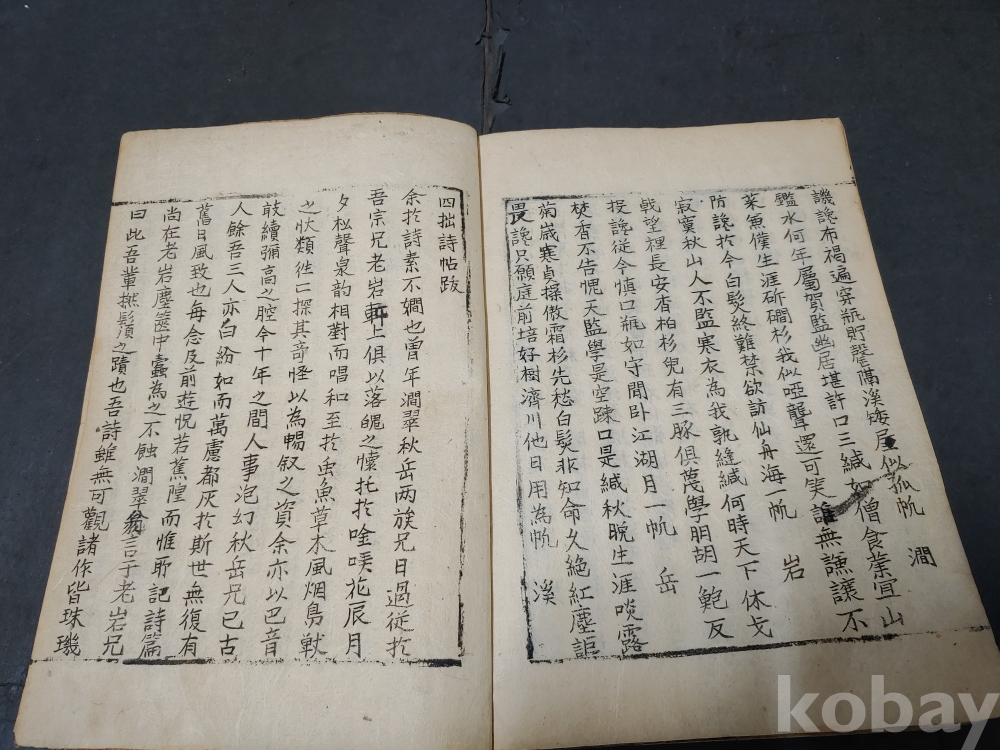 譏讒布褐遍穿瓶貯罄隔溪矮屋似孤帆 澗
鑑水何年屬賀監幽居堪許口三緘如僧食葉宜山
菜魚僕生涯斫磵杉我似啞聾還可笑誰無謙讓不
防讒於今白髮終難禁欲訪仙舟海一帆 岩
寂寞秋山人不監寒衣為我孰縫緘何時天下休戈
戟望裡長安杳柏杉兒有三豚俱蔑學朋胡一鮑反
投讒從今愼口瓶如守閒臥江湖月一帆 岳
焚香不告愧天監學是空踈口是緘秋晩生涯啖露
菊歲寒貞操傲霜杉先愁白髮非知命久絶紅塵詎
畏讒只願庭前培好樹濟川他日用為帆 溪
四拙詩帖跋
余於詩素不嫺也曾年澗翠秋岳两族兄日過從於
吾宗兄老岩軒上俱以落魄之懷托於唫嘆花辰月
夕松聲泉韵相對而唱和至於虫魚草木風烟鳥獸
之状類徃〻探其奇怪以為暢叙之資余亦以巴音
敢續彌高之腔今十年之間人事泡幻秋岳兄已古
人餘吾三人亦白紛如而萬慮都灰於斯世無復有
舊日風致也每念及前遊悦若蕉隍而惟所記詩篇
尚在老岩塵篋中蠹為之不蝕澗翠翁言于老岩兄
曰此吾輩撚鬚之蹟也吾詩雖無可觀諸作皆珠璣
kobay